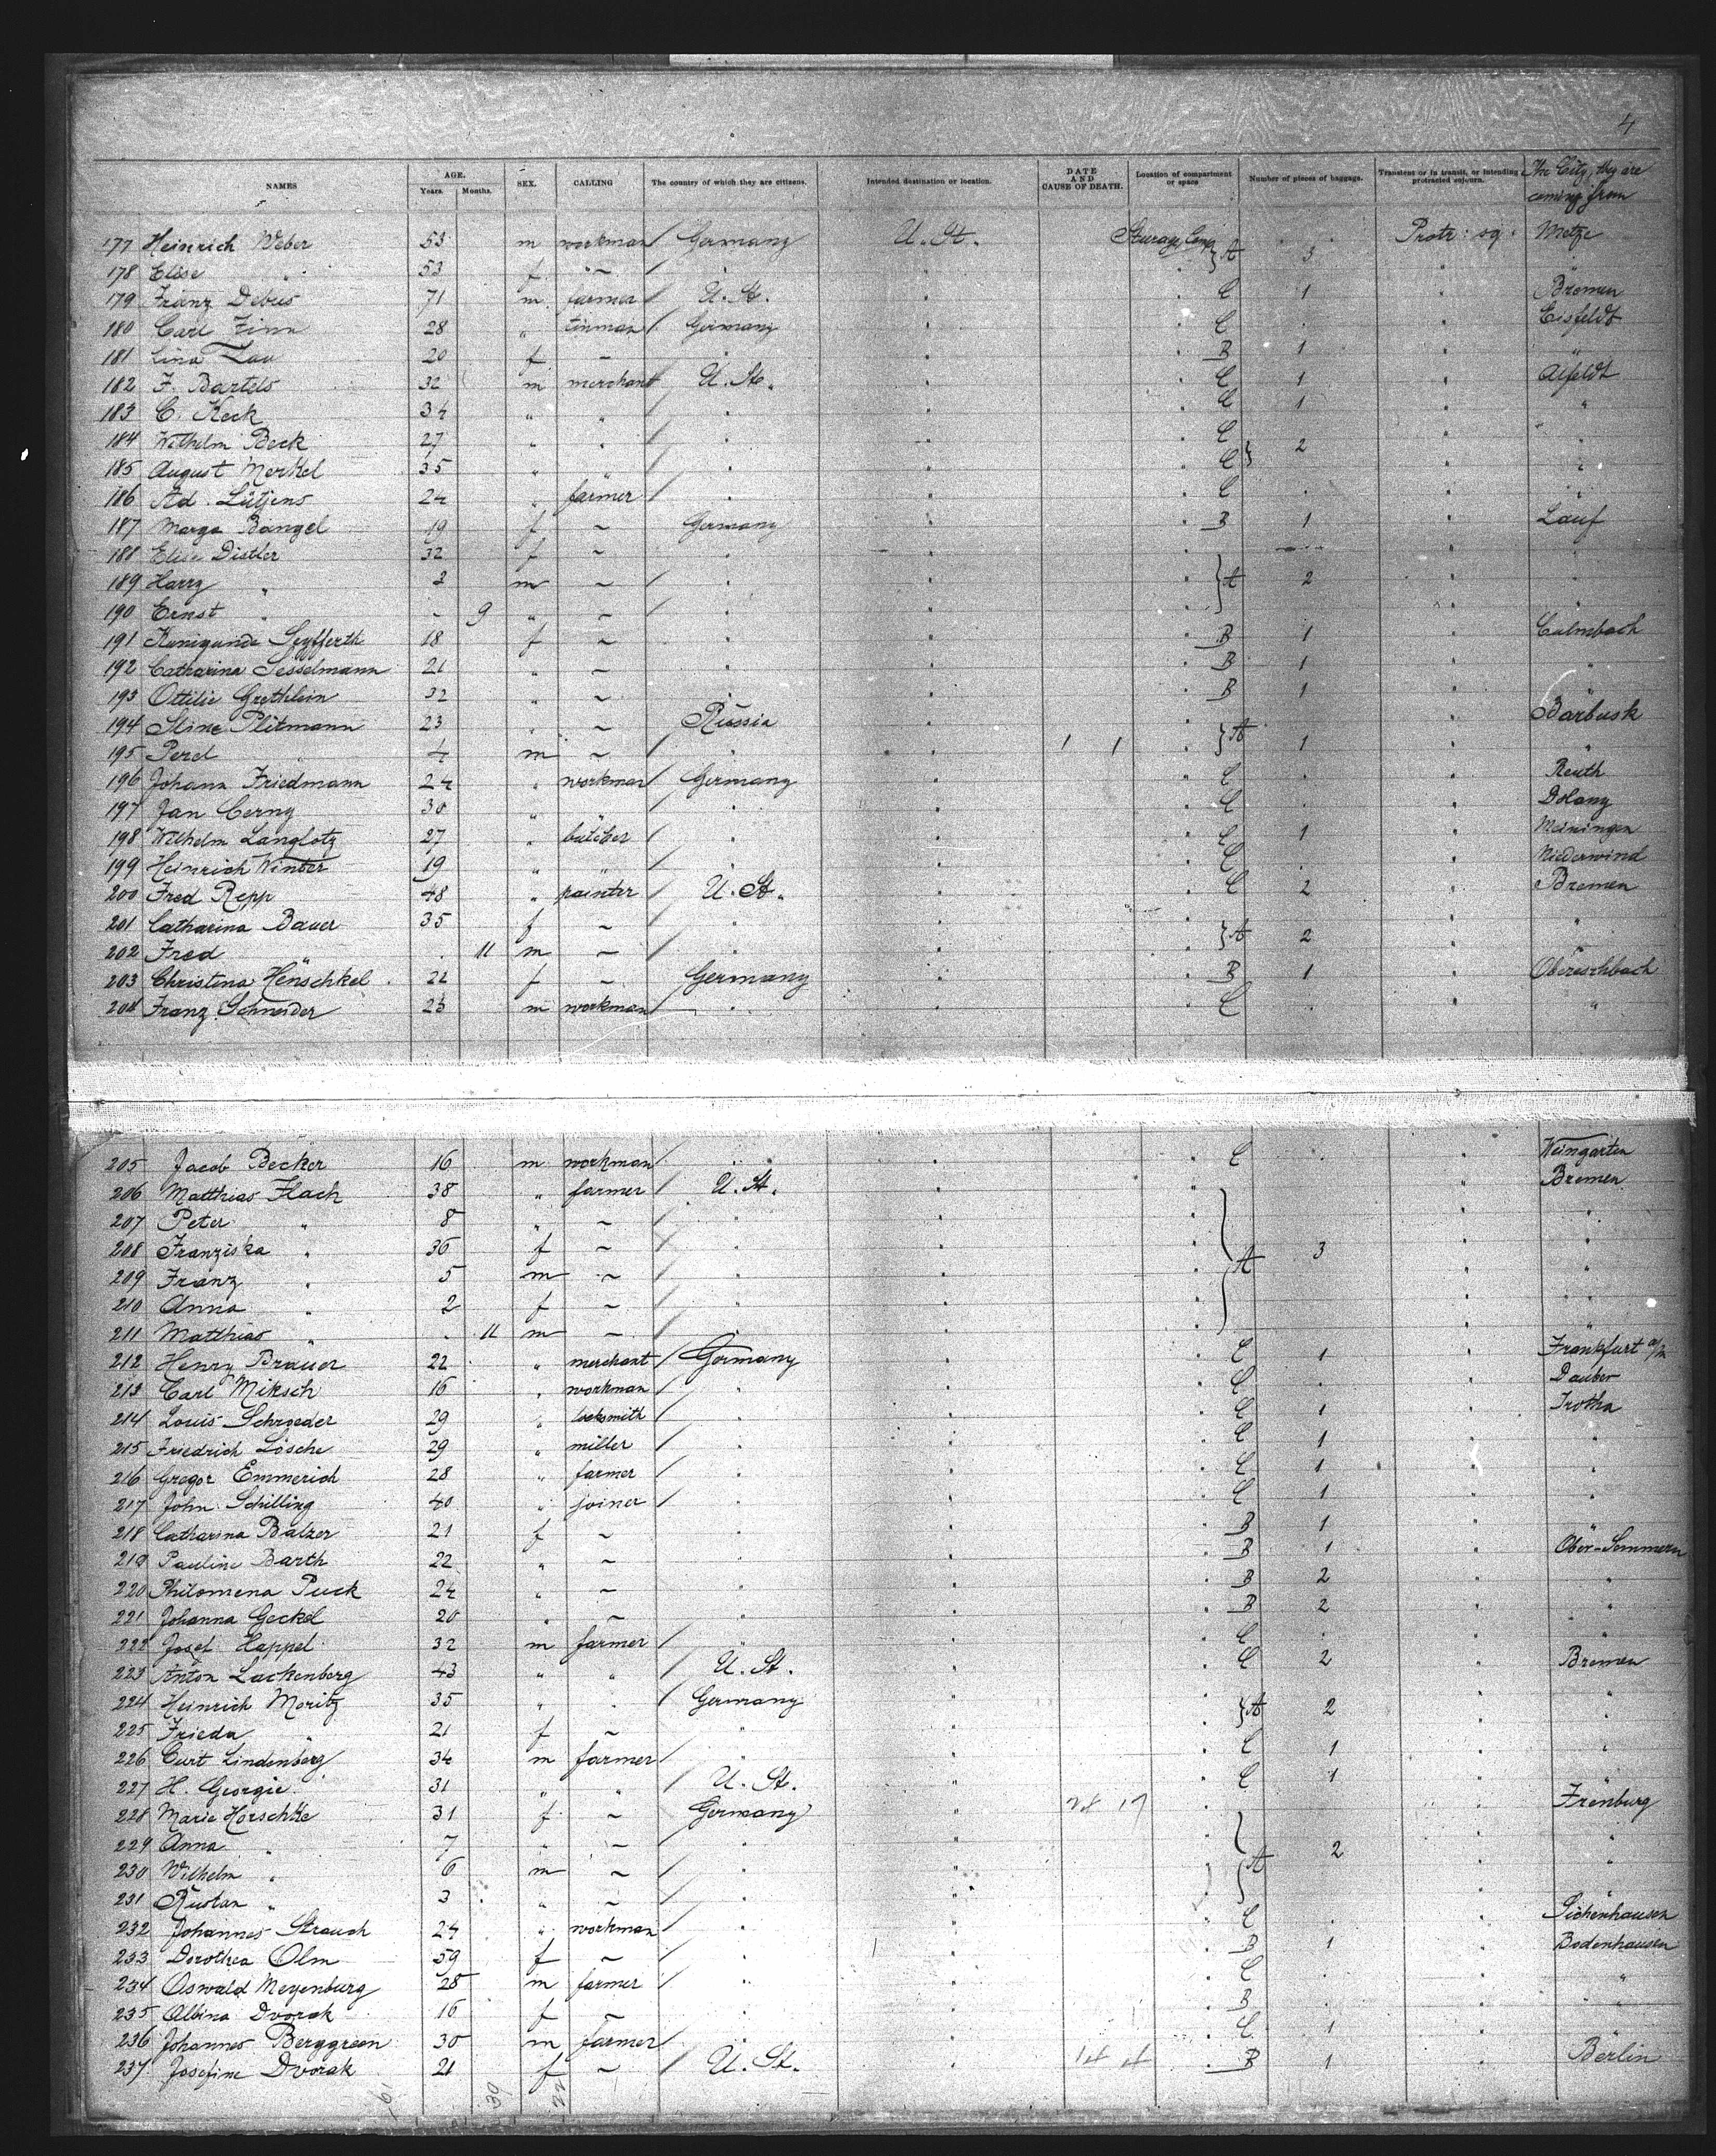 4
NAMES AGE. Years. Months. SEX. CALLING The country of which they are citizens. Intended destination or location. DATE AND CAUSE OF DEATH. Location of compartment or space Number of pieces of baggage. Transient or in transit, or intending protracted sojourn. The City, they are coming from
177 Heinrich Weber 53 m workman / Germany U. St. Steerage Comp } A 3 Protr: sg. Metze
178 Elise " 53 f " ~ / " " " "
179 Franz Debus 71 m farmer / U. St. " C 1 " Bremen
180 Carl Zinn 28 " tinman / Germany " C . " Eisfeldt
181 Lina Lau 20 f ~ " " B 1 " "
182 F. Bartels 32 m merchant U. St. " C 1 " Alfeldt
183 C. Keck 34 " " / " " C 1 " "
184 Wilhelm Beck 27 " " / " " C } 2 " "
185 August Merkel 35 " " / " " C " "
186 Ad. Lütjens 24 " farmer / " " C . " "
187 Marga Bangel 19 f ~ Germany " B 1 " Lauf
188 Elise Distler 32 f ~ / " " " "
189 Harry " 2 m ~ / " " } A 2 " "
190 Ernst " - 9 " ~ / " " " "
191 Kunigunde Seyfferth 18 f ~ " " B 1 " Culmbach
192 Catharina Sesselmann 21 " ~ " " B 1 " "
193 Ottilie Grethlein 32 " ~ " " B 1 " "
194 Stine Plitmann 23 " ~ Russia " } A 1 " Barbusk
195 Perel " 4 m ~ " " 1 1 " "
196 Johann Friedmann 24 " workman / Germany " C . " Reuth
197 Jan Cerny 30 " " / " " C . " Dolany
198 Wilhelm Langlotz 27 " butcher / " " C 1 " Meiningen
199 Heinrich Winter 19 " " / " " C . " Niederwind
200 Fred Repp 48 " painter / U. St. " C 2 " Bremen
201 Catharina Bauer 35 f ~ / " " } A 2 " "
202 Fred " . 11 m ~ / " " " "
203 Christina Henschkel 22 f ~ Germany " B 1 " Obereschbach
204 Franz Schneider 23 m workman / " " C . " "
205 Jacob Becker 16 m workman / " " C . " Weingarten
206 Matthias Flach 38 " farmer / U. St. " " Bremen
207 Peter " 8 " ~ / " " " "
208 Franziska " 36 f ~ / " " } A 3 " "
209 Franz " 5 m ~ / " " " "
210 Anna " 2 f ~ / " " " "
211 Matthias " . 11 m ~ / " " " "
212 Henry Bräuer 22 " merchant / Germany " C 1 " Frankfurt a/m
213 Carl Miksch 16 " workman / " " C . " Dauber
214 Louis Schroeder 29 " locksmith / " " C 1 " Trotha
215 Friedrich Lösche 29 " miller / " " C 1 " "
216 Gregor Emmerich 28 " farmer / " " C 1 " "
217 John Schilling 40 " joiner / " " C 1 " "
218 Catharina Balzer 21 f ~ " " B 1 " "
219 Pauline Barth 22 " ~ " " B 1 " Ober-Semmern
220 Philomena Puck 24 " ~ " " B 2 " "
221 Johanna Geckel 20 " ~ " " B 2 " "
222 Josef Happel 32 m farmer / " " C . " "
223 Anton Lackenberg 43 " " / U. St. " C 2 " Bremen
224 Heinrich Moritz 35 " " / Germany " } A 2 " "
225 Frieda " 21 f ~ / " " " "
226 Curt Lindenberg 34 m farmer / " " C 1 " "
227 H. Georgie 31 " " / U. St. " C 1 " "
228 Marie Horschke 31 f ~ / Germany " " Frenburg
229 Anna " 7 " ~ / " " } A 2 " "
230 Wilhelm " 6 m ~ / " " " "
231 Rustan " 3 " ~ / " " " "
232 Johannes Strauch 24 " workman / " " C . " Sichenhausen
233 Dorothea Olm 59 f ~ " " B 1 " Bodenhausen
234 Oswald Meyenburg 28 m farmer / " " C . " "
235 Albina Dvorak 16 f ~ " " B . " "
236 Johannes Berggreen 30 m farmer / " " C 1 " "
237 Josefine Dvorak 21 f ~ / U. St. " B 1 " Berlin